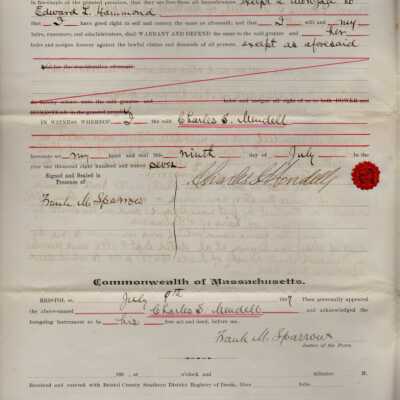 in fee-simple of the granted premises, that they are free from all incumbrances except a mortgage to
Edward L. Hammond
that I have good right to sell and convey the same as aforesaid; and that I will and my
heirs, executors, and administrators, shall WARRANT AND DEFEND the same to the said grantee and her
heirs and assigns forever against the lawful claims and demands of all persons, except as aforesaid
And for the consideration aforesaid
do hereby release unto the said grantee and heirs and assigns all right of or to both DOWER and
HOMESTEAD in the granted premises
IN WITNESS WHEREOF, I the said Charles S. Mendell
hereunto set my hand and seal this ninth day of July in the
year one thousand eight hundred and ninety seven
Signed and Sealed in
Presence of
Charles S. Mendell
Frank M. Sparrow
Commonwealth of Massachusetts.
BRISTOL ss. July 9th 1897 Then personally appeared
the above-named Charles S. Mendell and acknowledged the
foregoing instrument to be his free act and deed, before me,
Frank M. Sparrow
Justice of the Peace.
189 , at o'clock and minutes M.
Received and entered with Bristol County Southern District Registry of Deeds, libro folio